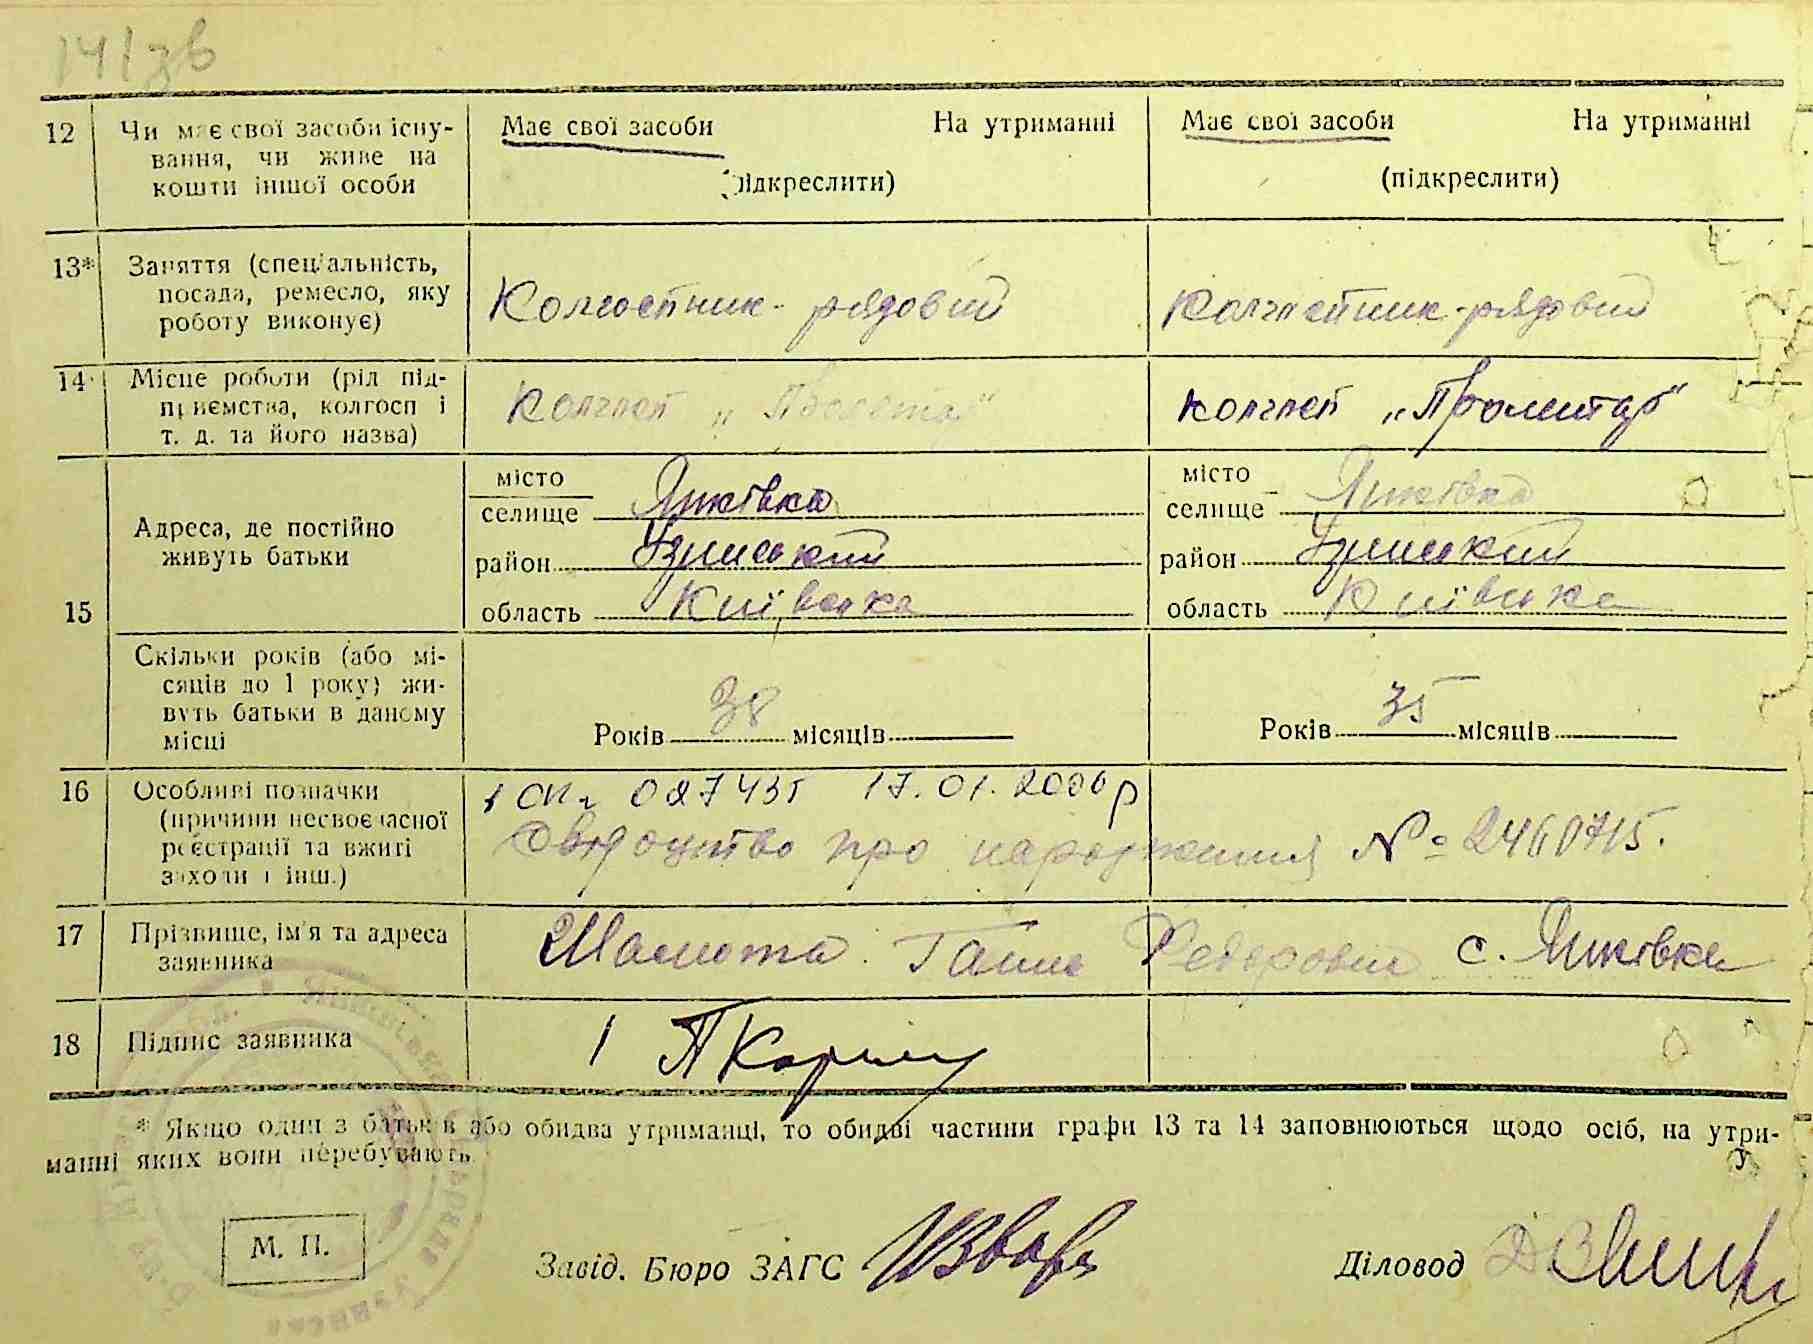 141зв
12 Чи має свої засоби існу-
вання, чи живе на
кошти іншої особи
Має свої засоби На утриманні
(підкреслити)
Має свої засоби На утриманні
(підкреслити)
13* Заняття (спеціальність,
посада, ремесло, яку
роботу виконує)
Колгоспник-рядовий
Колгоспник-рядовий
14 Місце роботи (ріл під-
приємства, колгосп і
т. д. та його назва)
Колгосп „Пролетар"
Колгосп „Пролетар"
15 Адреса, де постійно
живуть батьки
місто
селище Яшківка
район Узинський
область Київська
місто
селище Яшківка
район Узинський
область Київська
Скільки років (або мі-
сяців до 1 року) жи-
вуть батьки в даному
місці
Років 38 місяців
Років 35 місяців
16 Особливі позначки
(причини несвоєчасної
реєстрації та вжиті
заходи і інш.)
027435 17.01.2000р
Свідоцтво про народження № 2460715.
17 Прізвище, ім'я та адреса
заявника
Шамота Ганна Федоровна с. Яшківка
18 Підпис заявника
* Якщо один з батьків або обидва утриманці, то обидві частини графи 13 та 14 заповнюються щодо осіб, на утри-
манні яких вони перебувають
М. П.
Завід. Бюро ЗАГС
Діловод